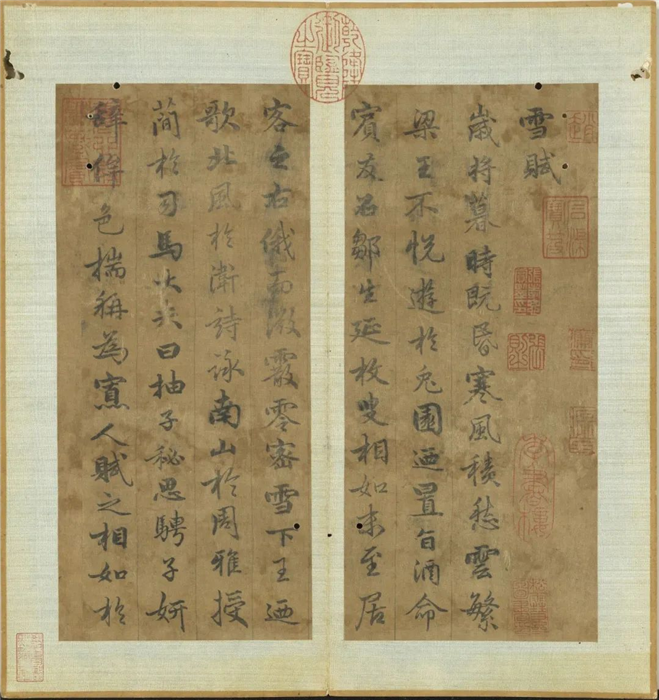 乾隆御覽之寶
雪賦
歲將暮時既昏寒風積愁雲繁
梁王不悅遊於兔園迺置旨酒命
賓友召鄒生延枚叟相如末至居
客之右俄而微霰零密雪下王迺
歌北風於衛詩詠南山於周雅授
簡於司馬大夫曰抽子秘思騁子妍
辭侔色揣稱為寡人賦之相如於